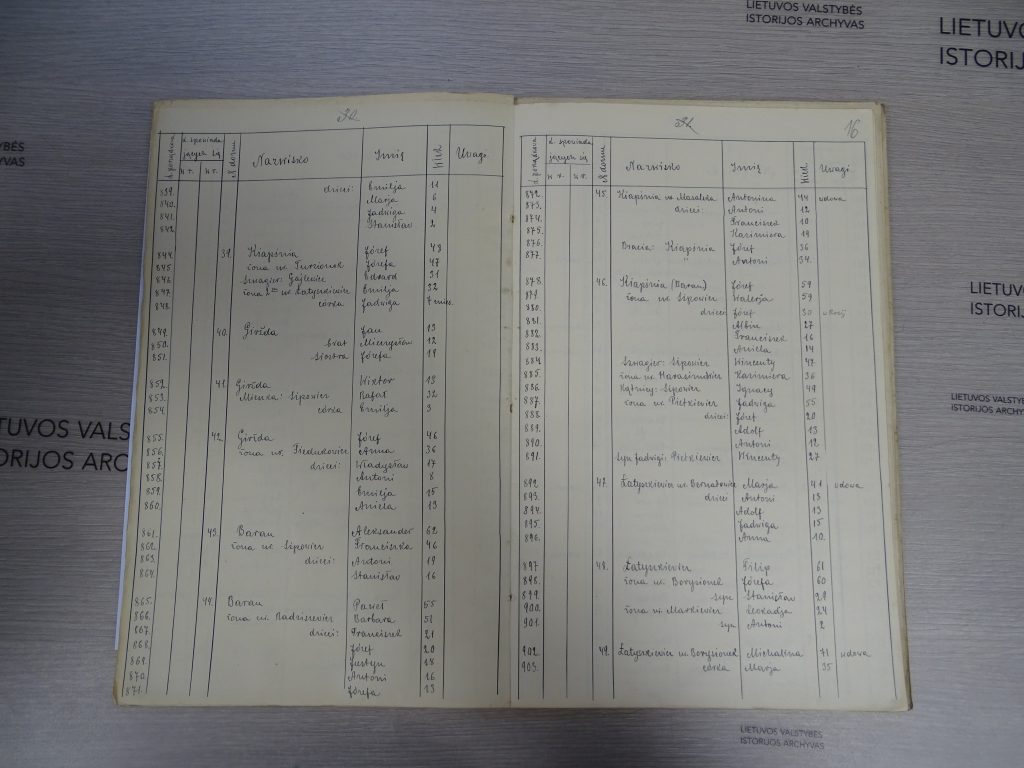 LIETUVOS VALSTYBĖS
ISTORIJOS ARCHYVAS
LIETUVO
ISTORIJ
BĖS
YVAS
LIETU
ISTOR
LIETUVOS VALST
ISTORIJOS ARCHYVAS
TUVOS VALS
ORIJOS ARC
LIETUVOS VALSTYBĖS
ISTORIJOS ARCHYVAS
Nazwisko Imię Wiek Uwagi
839. dzieci: Emilja 11
840. Marja 6
841. Jadwiga 4
842. Stanisław 2
844. 39. Kiapśnia Józef 48
845. żona ur. Józefa 47
846. Szwagier: Gajlewicz Edward 31
847. żona ur. Łatyszkiewicz Emilja 32
848. córka Jadwiga 7 mies.
849. 40. Giržda Jan 19
850. brat Mieczysław 12
851. siostra Józefa 18
852. 41. Giržda Wiktor 19
853. Sipowicz Rafał 32
854. córka Emilja 3
855. 42. Giržda Józef 46
856. żona ur. Fiedukowicz Anna 36
857. dzieci: Władysław 17
858. Antoni 8
859. Emilja 15
860. Aniela 13
861. 43. Baran Aleksander 62
862. żona ur. Sipowicz Franciszka 46
863. dzieci: Antoni 19
864. Stanisław 16
865. 44. Baran Paweł 55
866. żona ur. Radziszewicz Barbara 51
867. dzieci: Franciszek 21
868. Józef 20
869. Justyn 18
870. Antoni 16
871. Józefa 13
16
Nazwisko Imię Wiek Uwagi
872. 45. Kiapśnia ur. Antonina 44 wdowa
873. dzieci: Antoni 12
874. Franciszek 10
875. Kazimiera 19
876. Bracia: Kiapśnia Józef 36
877. " Antoni 34.
878. 46. Kiapśnia (Baran) Józef 59
879. żona ur. Sipowicz Walerja 59
880. dzieci Józef 30
881. Albin 27
882. Franciszek 16
883. Aniela 14
884. Szwagier: Sipowicz Wincenty 47
885. żona ur. Harasimowicz Kazimiera 36
886. Kątnicy: Sipowicz Ignacy 49
887. żona ur. Pietkiewicz Jadwiga 55
888. dzieci: Józef 20
889. Adolf 13
890. Antoni 12
891. syn Jadwigi: Pietkiewicz Wincenty 27
892 47. Łatyszkiewicz ur. Bernatowicz Marja 41 wdowa
893. dzieci Antoni 13
894. Adolf 13
895. Jadwiga 15
896. Anna 10.
897 48. Łatyszkiewicz Filip 61
898. żona ur. Borysionek Józefa 60
899. syn Stanisław 29
900. żona ur. Markiewicz Leokadja 24
901. syn Antoni 2
902. 49. Łatyszkiewicz ur. Borysionek Michalina 71 wdowa
903. córka Marja 35